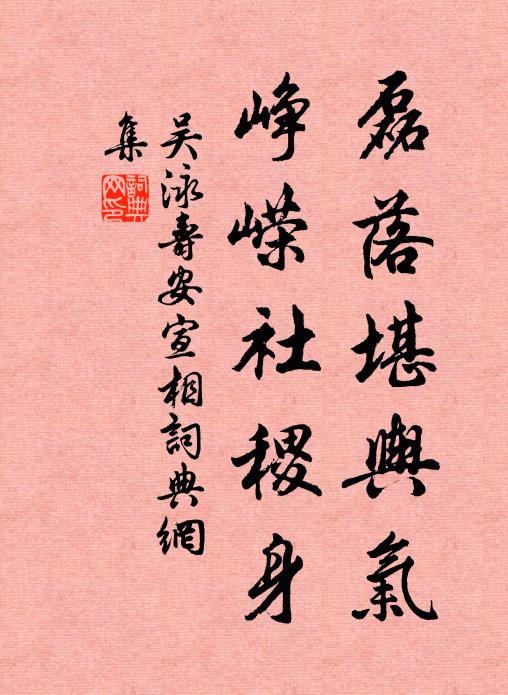 磊落堪輿氣
崢嶸社稷身
吴泳壽安宣相詞典網
集
詞典網印